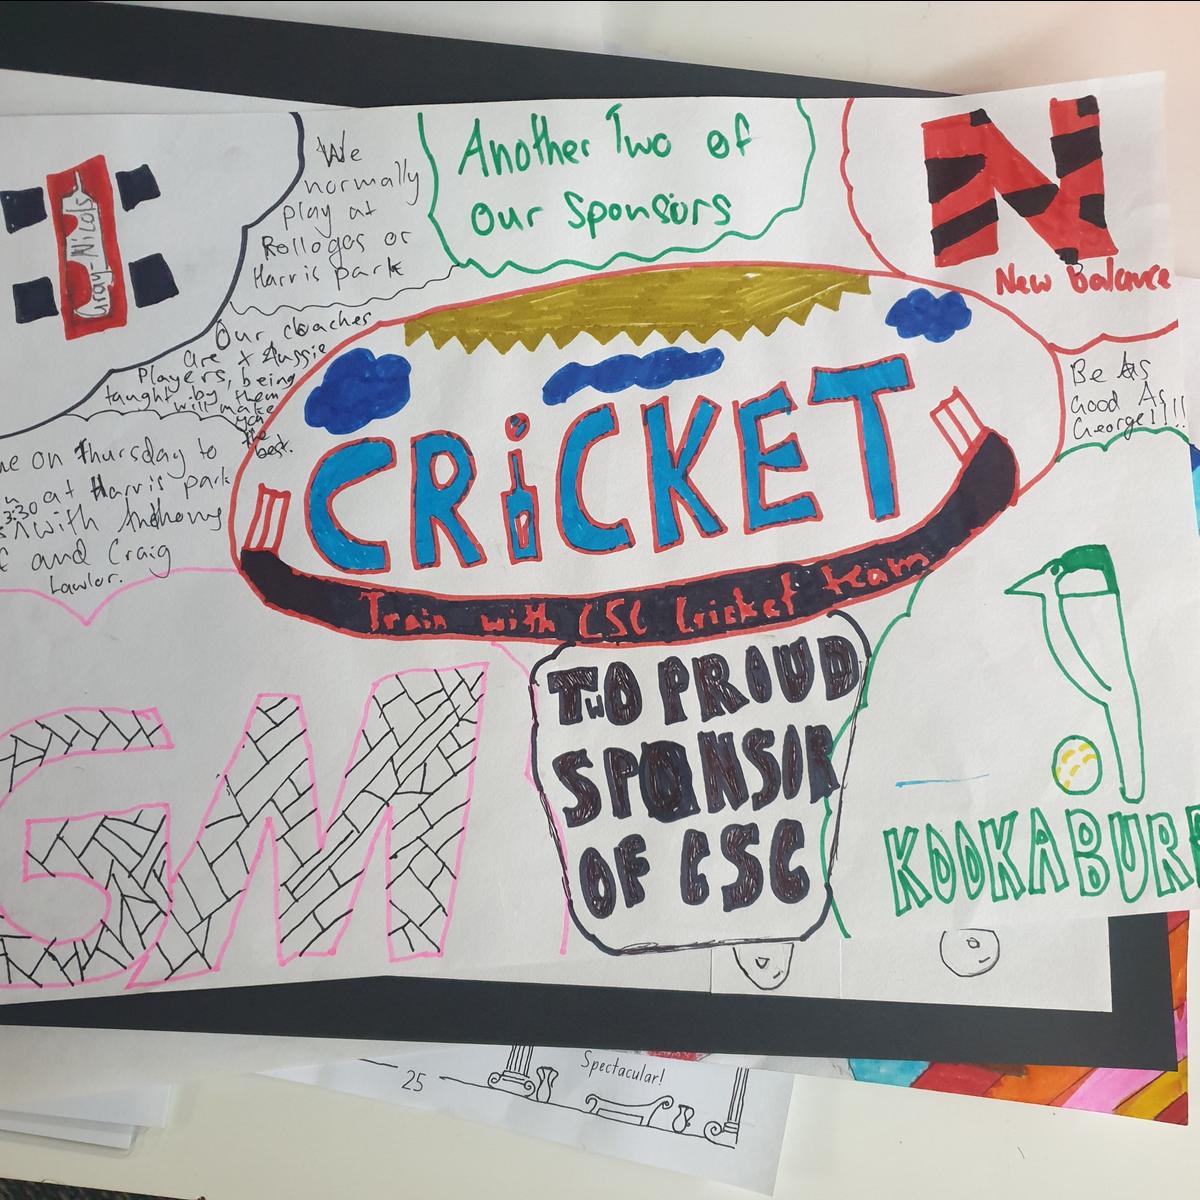 Gray-Nicols
We
normally
play at
Rollogas or
Harris park
Another Two of
our Sponsors
New Balance
Our coaches
are x Aussie
Players, being
taught by them
will make
you
the
best.
CRiCKET
Train with CSC Cricket team
Be As
Good As
George!!!!
on thursday to
at Harris park
3:30
with Anthony
and Craig
Lawlor.
GM
TwO PROUD
SPONSOR
OF CSC
KOOKABURR
25
Spectacular!